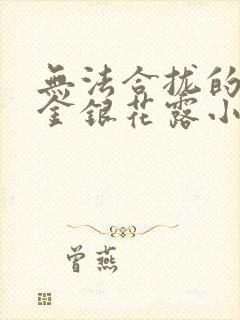 無法合拢的
金銀花露小
曾燕